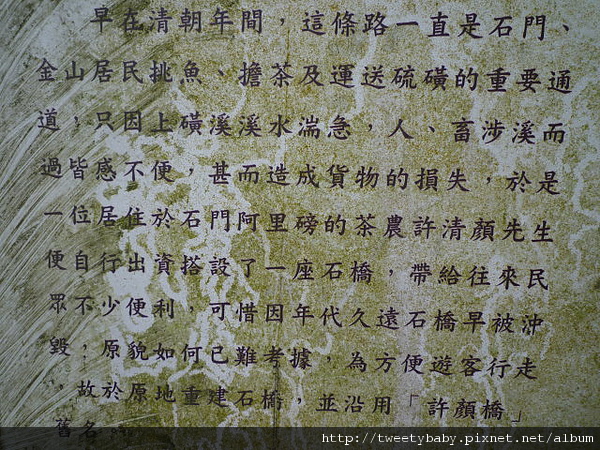 早在清朝年間，這條路一直是石門、
金山居民挑魚、擔茶及運送硫磺的重要通
道；只因上磺溪溪水湍急，人、畜涉溪而
過皆感不便，甚而造成貨物的損失，於是
一位居住於石門阿里磅的茶農許清顏先生
便自行出資搭設了一座石橋，帶給往來民
眾不少便利，可惜因年代久遠石橋早被沖
毀，原貌如何已難考據，為方便遊客行走
，故於原地重建石橋，並沿用「許顏橋」
舊名。
http://tweetybaby.pixnet.net/album